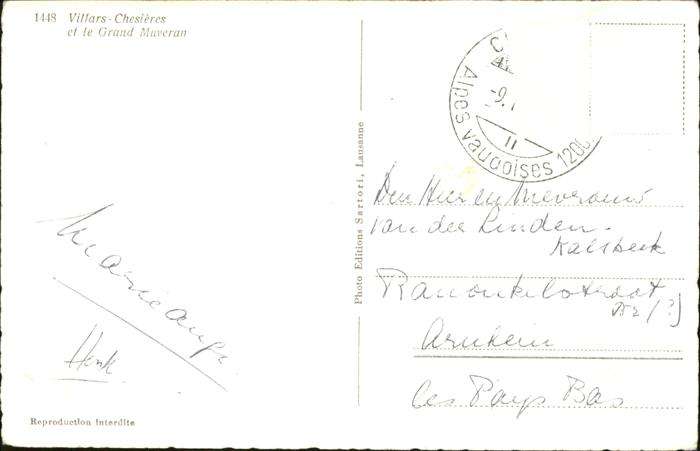 1448 Villars-Chesières
et le Grand Muveran
Alpes vaudoises 1200
-9.
11
Photo Editions Sartori, Lausanne
Den Heer en Mevrouw
van der Linden-
Kalsbeek
Ranonkelstraat
Nr (?)
Arnhem
Les Pays Bas
Henk
Reproduction interdite